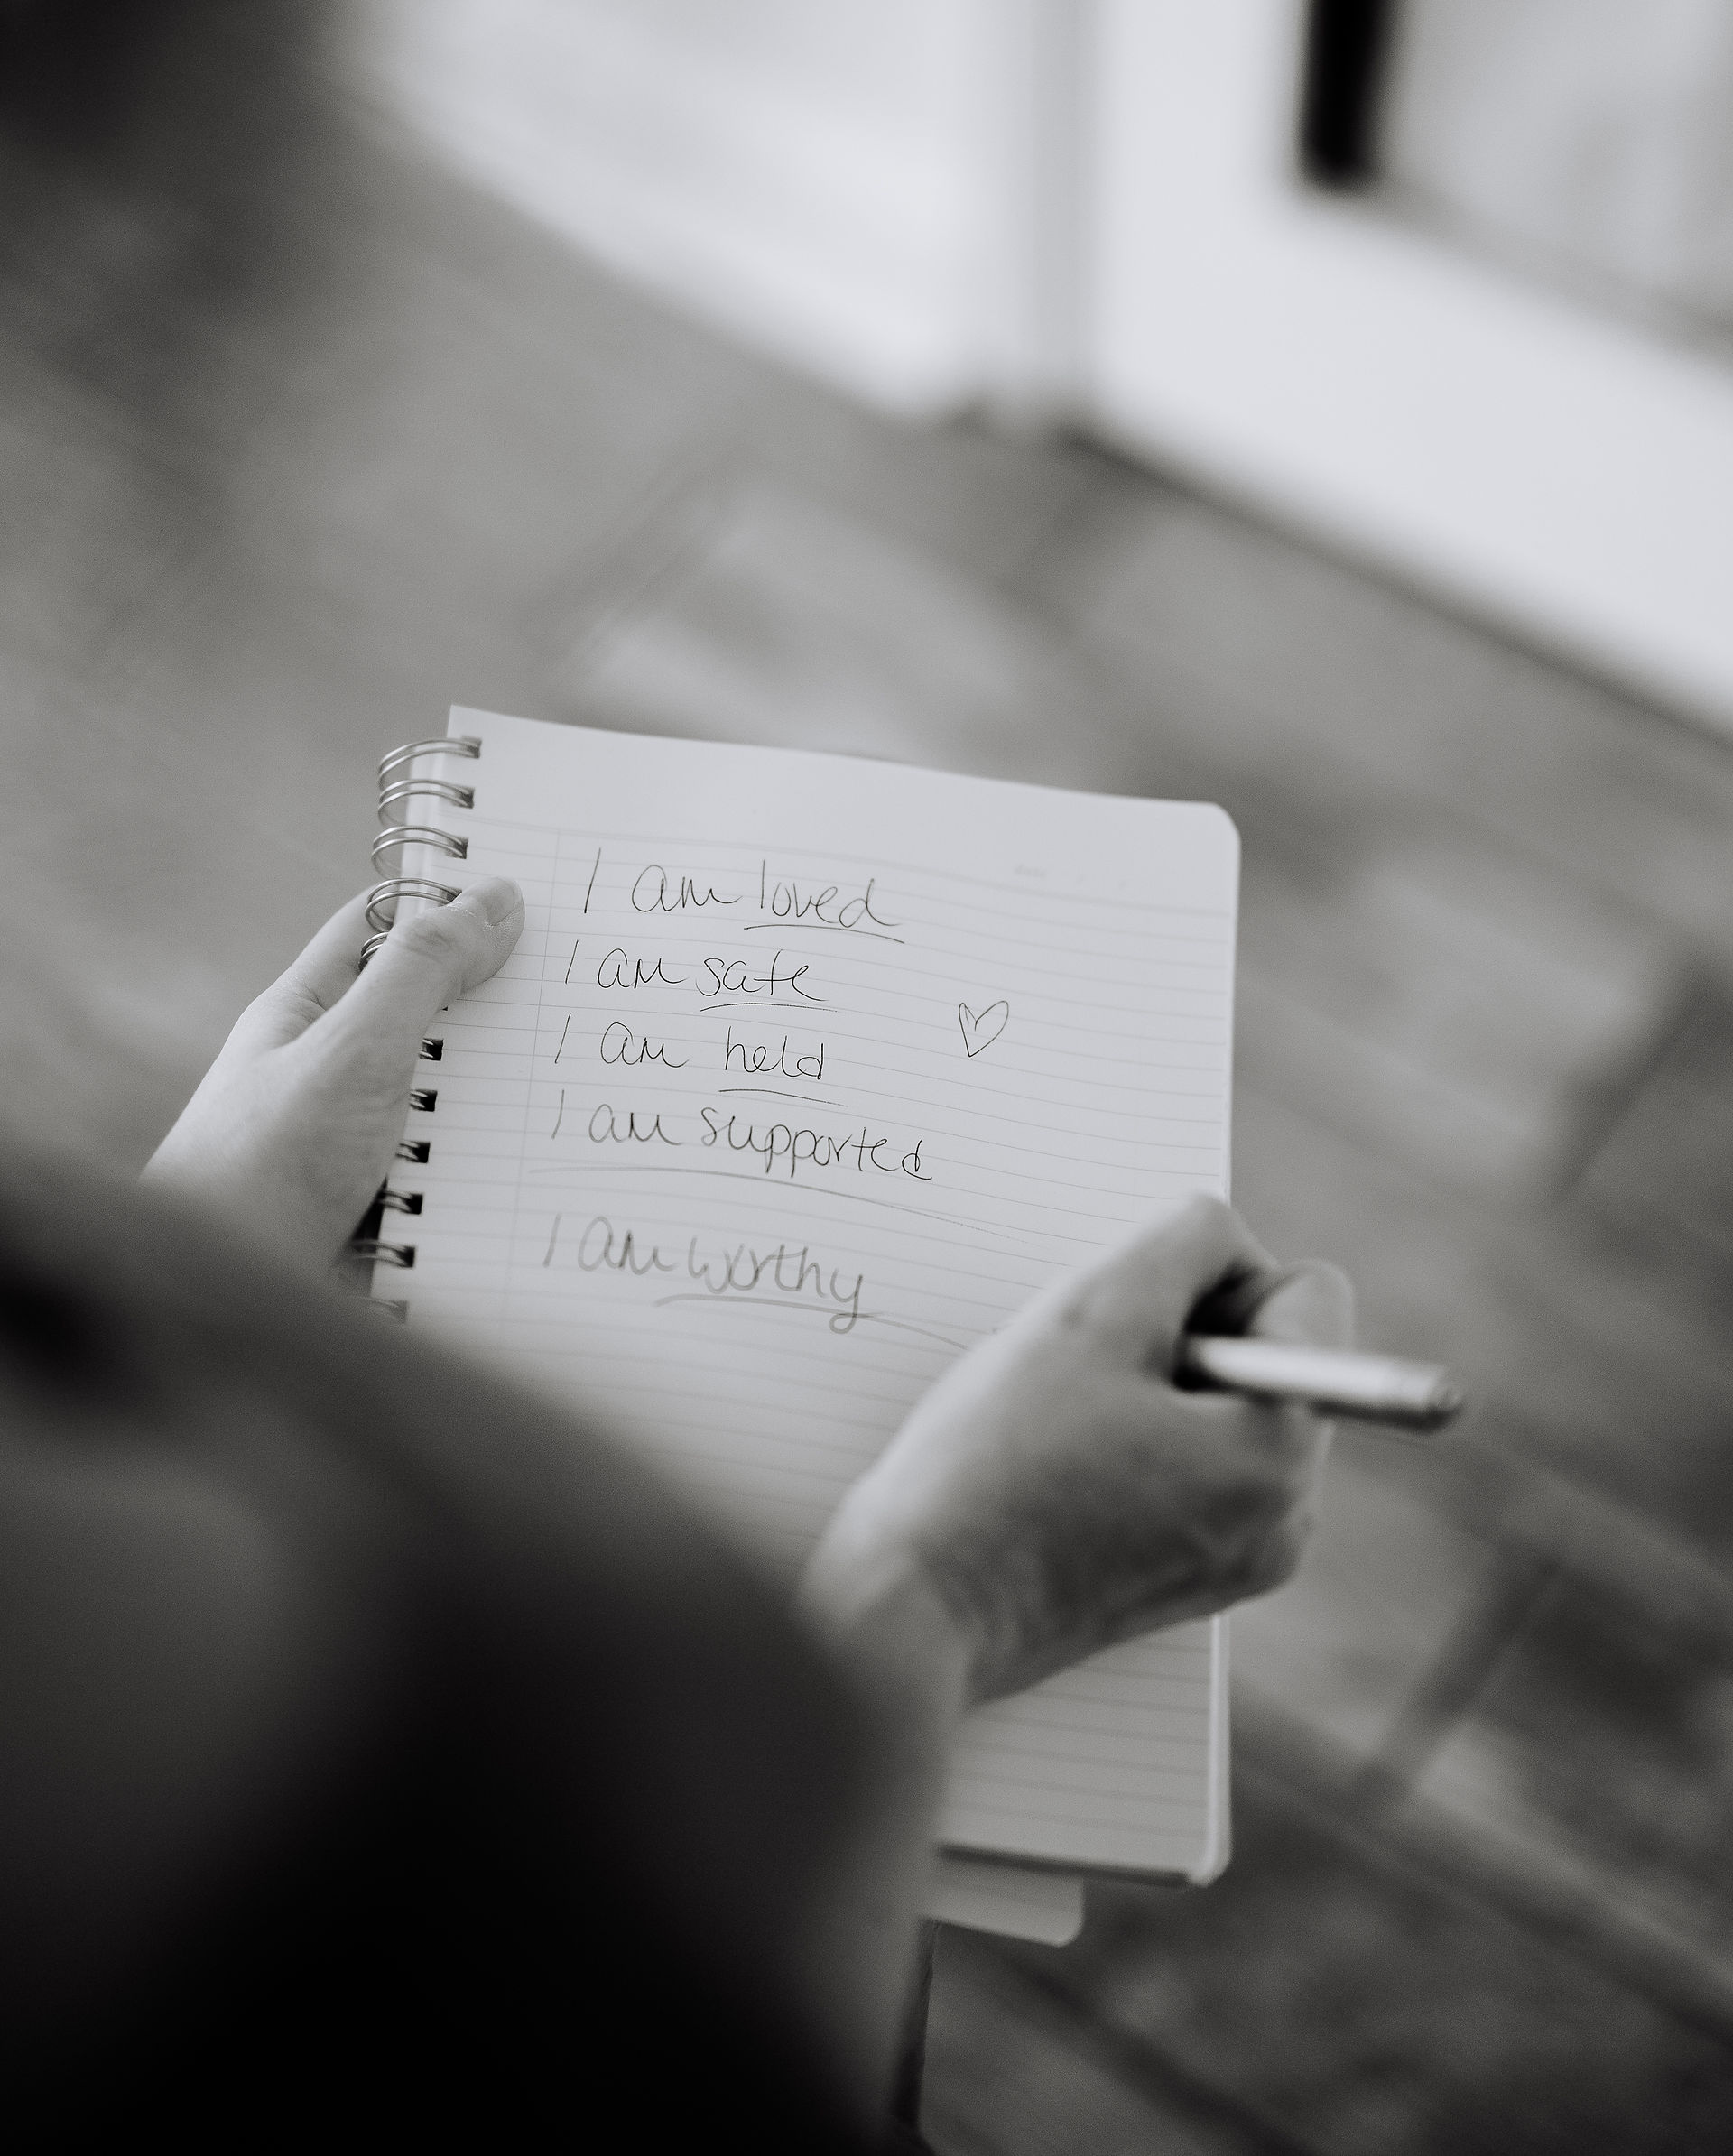 I am loved
I am safe
I am held
I am supported
I am worthy